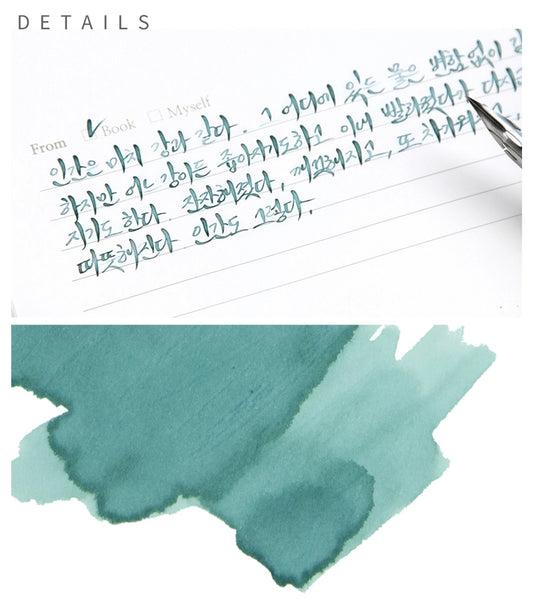 DETAILS
From
Book
Myself
인간은 마치 강과 같다. 어디에 있든 물은 변함 없이
하지만 어느 강이든 좁아지기도하고 이내 빨라졌다가 다시금
지기도 한다. 잔잔해졌다, 깨끗해지고, 또 차가워
따뜻해진다 인간도 그렇다.